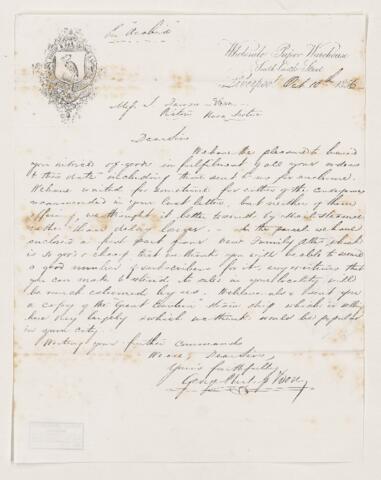 Per "Arabia"
Wholesale Paper Warehouse
South Castle Street
Liverpool Oct 10th 1856
Messrs J Dawson
Pictou Nova Scotia
Dear Sirs
We have the pleasure to hand
you invoice of goods in fulfilment of all your orders
to this date including those sent to us for enclosure
We have waited for sometime for either of the
recommended in your last letter, but neither of them
offering, we thought it better to send by Mail Steamer
rather than delay longer. In the parcel we have
enclosed a first part from new Family Atlas, which
is so good & cheap that we think you will be able to
a good number of subscribers for it, any exertions that
you can make to extend its sales in your locality will
be much esteemed by us. We have also sent you
a copy of the "Great Eastern" steam ship which is selling
here very largely & which we think would be popular
in your city.
Waiting your further commands
We are, Dear Sirs,
Yours faithfully
George Philip & Son